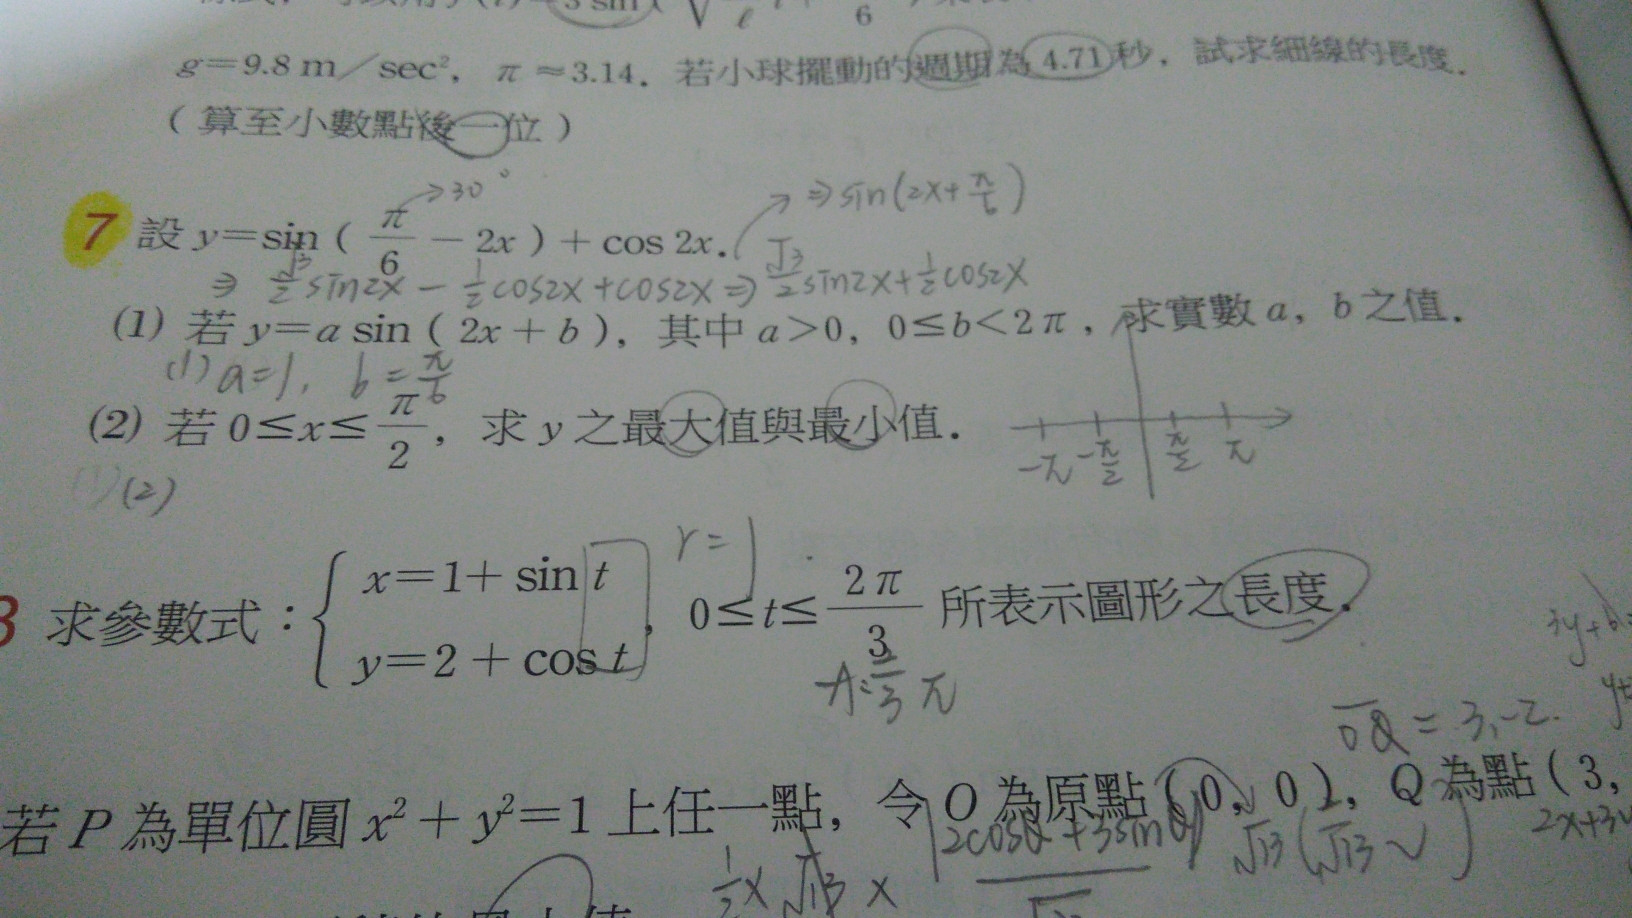 3 sin
6
g=9.8 m/sec², π≈3.14. 若小球擺動的週期為 4.71 秒, 試求細線的長度.
(算至小數點後一位)
→30° ⇒sin(2x+π/6)
7 設 y=sin(π/6-2x)+cos 2x.
⇒ √3/2 sin2x - 1/2 cos2x+cos2x ⇒ √3/2 sin2x+1/2 cos2x
(1) 若 y=a sin(2x+b), 其中 a>0, 0≤b<2π, 求實數 a, b 之值.
(1) a=1, b=π/6
(2) 若 0≤x≤π/2, 求 y 之最大值與最小值.
-π -π/2 π/2 π
(2)
r=1
求參數式:{x=1+sin t, y=2+cos t, 0≤t≤2π/3 所表示圖形之長度.
A:2/3 π
OQ = 3,-2.
若 P 為單位圓 x²+y²=1 上任一點, 令 O 為原點(0, 0), Q 為點(3,
1/2 × √13 × |2cosθ+3sinθ| √13